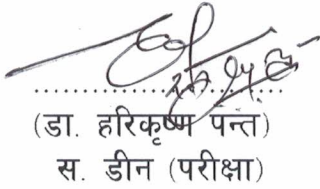 ........................
(डा. हरिकृष्ण पन्त)
स. डीन (परीक्षा)